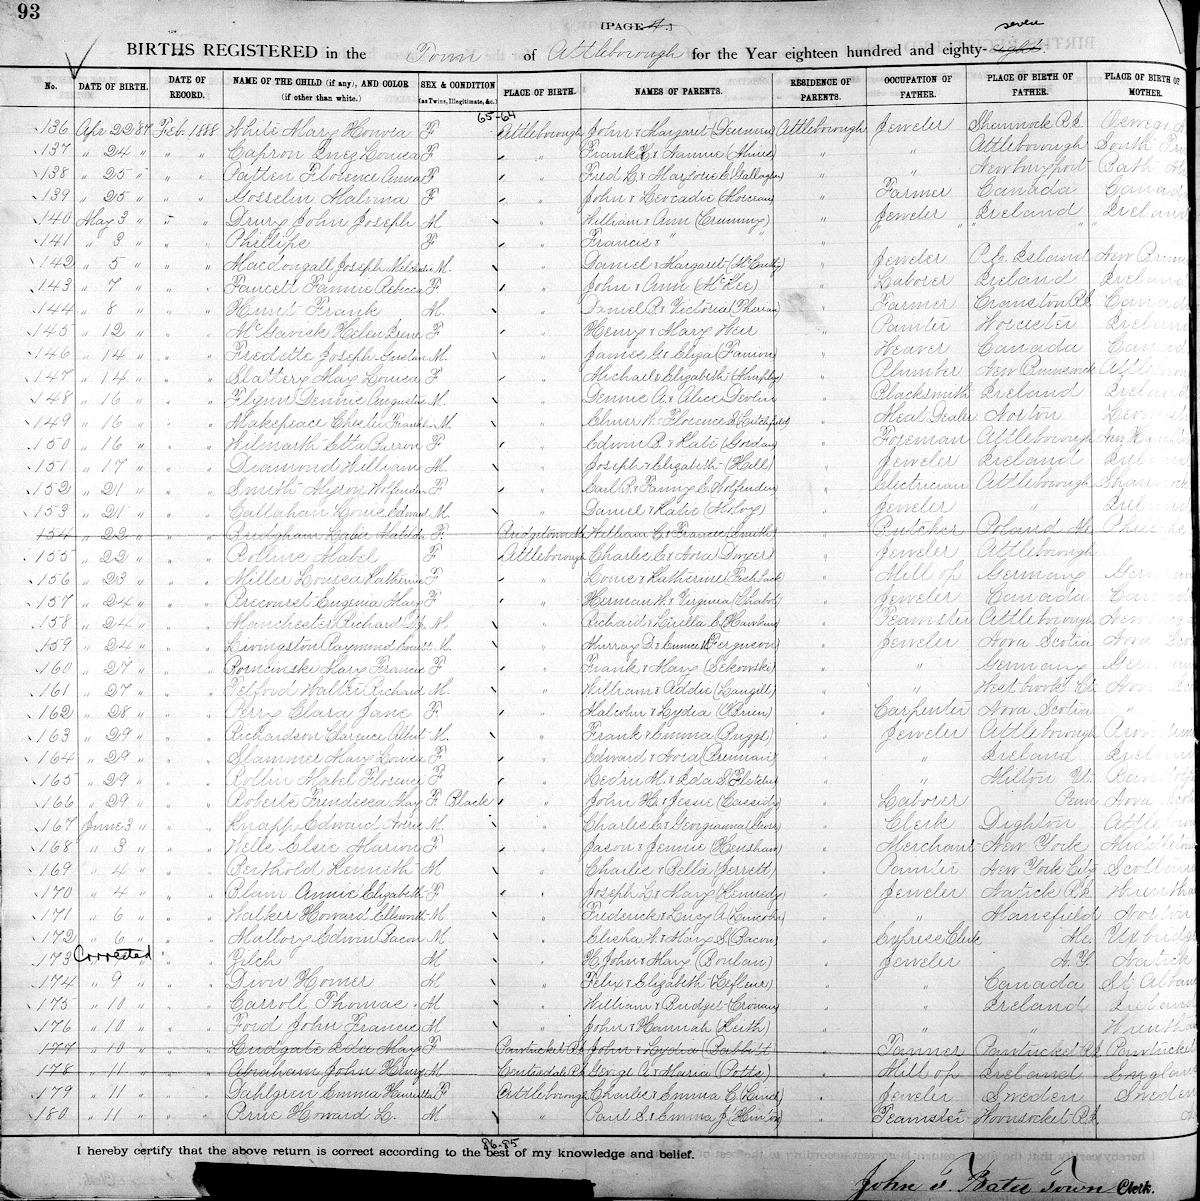 93
[PAGE 4.]
seven
BIRTHS REGISTERED in the Town of Attleborough for the Year eighteen hundred and eighty-eight.
No. DATE OF BIRTH. DATE OF RECORD. NAME OF THE CHILD (if any), AND COLOR (if other than white.) SEX & CONDITION (as Twins, Illegitimate, &c.) PLACE OF BIRTH. NAMES OF PARENTS. RESIDENCE OF PARENTS. OCCUPATION OF FATHER. PLACE OF BIRTH OF FATHER. PLACE OF BIRTH OF MOTHER.
65-64
136 Apr 22 87 Feb. 1888 White Mary Honora F Attleborough John & Margaret Attleborough Jeweler Shannock R.I.
137 " 24 " " " Capron Inez Louisa F " Frank E & Nannie " " Attleborough South
138 " 25 " " " Patten Florence Anna F " Fred C. & Marjorie E (Gallagher) " " Newburyport Bath
139 " 25 " " " Gosselin Malvina F " John & Leocadie (Morceau) " Farmer Canada Canad
140 May 3 " " " Drury John Joseph M " William & Ann (Crumming) " Jeweler Ireland Irelan
141 " 3 " " " Phillips F " Francis & " " "
142 " 5 " " " Macdougall Joseph M. " Daniel & Margaret (McCarthy) " Jeweler P.E. Island New Bruns
143 " 7 " " " Fawcett Fannie Rebecca F " John & Ann (McKee) " Laborer Ireland Irelan
144 " 8 " " " Hunt Frank M. " Daniel P. & Victoria " Farmer Cranston R.I. Canad
145 " 12 " " " McGavick Helen Irene F " Henry & Mary Weir " Painter Worcester Irelan
146 " 14 " " " Fredette Joseph Gustan M. " James G. & Eliza " Weaver Canada Can
147 " 14 " " " Slattery May Louisa F " Michael & Elizabeth (Murphy) " Plumber New Brunswick Attlebo
148 " 16 " " " Flynn Dennis Augustin M. " Dennis A. & Alice Devlin " Blacksmith Ireland Irelan
149 " 16 " " " Makepeace Chester Franklin M. " Elmer W. & Florence S (Critchfield) " Meat Dealer Norton
150 " 16 " " " Wilmarth Etta Perron F " Edwin B. & Kate (Jordan) " Foreman Attleborough New Ham
151 " 17 " " " Diamond William M. " Joseph & Elizabeth (Hall) " Jeweler Ireland Irel
152 " 21 " " " Smith Myron Wolfenden F " Carl P. & Fanny E. Wolfenden " Electrician Attleborough Shannock
153 " 21 " " " Callahan Louis Edward M. " Daniel & Katie " Jeweler " Irelan
154 " 22 " " " Bridgham Mabel Matilda F. William C. & Francis Smith " Butcher Poland Me.
155 " 22 " " " Rolline Mabel F Attleborough Charles E. & Nora Dwyer " Jeweler Attleborough
156 " 23 " " " Miller Louisa Katherine F " Louis & Katherine " Mill op Germany Ger
157 " 24 " " " Precourst Eugenia May F " Herman W. & Virginia (Chabot) " Jeweler Canada Canad
158 " 24 " " " Manchester Richard M. " Richard & (Hawkins) " Teamster Attleborough
159 " 24 " " " Livingston Raymond M. " Murray D. & Eunice (Ferguson) " Jeweler Nova Scotia Nova
160 " 27 " " " Mary Francis F " Frank & Mary (Sekowski) " " Germany Ger
161 " 27 " " " Telford Walter Richard M. " William & Addie (Cargill) " " Westbrook Ct. Nova
162 " 28 " " " Perry Clara Jane F " Malcolm & Lydia (Brien) " Carpenter Nova Scotia "
163 " 29 " " " Richardson Clarence Albert M. " Frank & Emma (Briggs) " Jeweler Attleborough
164 " 29 " " " Slammer Mary Louisa F " Edward & Nora (Brennan) " " Ireland Irelan
165 " 29 " " " Rollin Mabel Florence F " Ledru M. & Ida S. Fletcher " " Milton Vt.
166 " 29 " " " Roberts Frendesca May F Black " John H. & Jessie (Cassidy) " Laborer Penn Nova
167 June 3 " " " Knapp Edward M. " Charles E. & Georgianna " Clerk Dighton Attleb
168 " 3 " " " Wells Elsie Marion F " Jason & Jennie (Henshaw) " Merchant New York Middlebo
169 " 4 " " " Berthold Kenneth M. " Charles & Bella (Jerrett) " Painter New York City Scotlan
170 " 4 " " " Blain Annie Elizabeth F " Joseph L. & Mary (Kennedy) " Jeweler Natick R.I. Wrentha
171 " 6 " " " Walker Howard Ellsworth M " Frederick & Lucy A (Lincoln) " " Mansfield Norton
172 " 6 " " " Mallory Edwin Bacon M " Elisha N. & Mary S. (Bacon) " Express Clerk Me. Uxbridge
173 Corrected " " Zilch M " H. John & Mary (Boulan) " Jeweler N.Y. Natick
174 " 9 " " " Dion Homer M " Felix & Elizabeth (Lefleur) " " Canada St. Alban
175 " 10 " " " Carroll Thomas M " William & Bridget (Cronan) " " Ireland Irelan
176 " 10 " " " Ford John Francis M " John & Hannah (Keith) " " " Wrentha
177 " 10 " " " Ludgate Ida May F Pawtucket R.I. John & Lydia (Babbitt) " Farmer Pawtucket R.I. Pawtucket
178 " 11 " " " Abraham John Henry M Centredale R.I. George A. & Maria (Potts) " Mill op Ireland Englan
179 " 11 " " " Dahlgren Emma Henrietta F Attleborough Charles & Emma C. (Lind) " Jeweler Sweden Sweden
180 " 11 " " " Howard L. M " Paul S. & Emma J. (Hinton) " Teamster Woonsocket R.I.
86-85
I hereby certify that the above return is correct according to the best of my knowledge and belief.
John T. Bates Town Clerk.